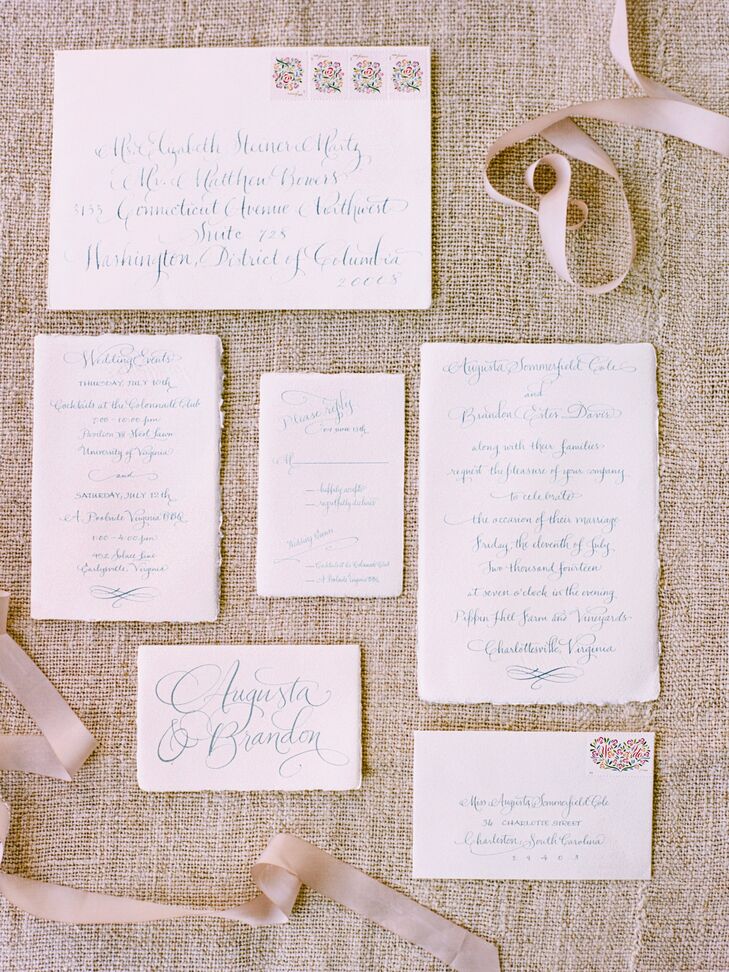 Ms. Elizabeth Steiner Martz
Mr. Matthew Bowers
Connecticut Avenue Northwest
Suite 728
Washington, District of Columbia
20008
Wedding Events
THURSDAY, JULY 10th
Cocktails at the Colonnade Club
7:00 - 10:00 pm
Pavilion VII West Lawn
University of Virginia
and
SATURDAY, JULY 12th
A Poolside Virginia BBQ
1:00 - 4:00 pm
Lane
Earlysville, Virginia
Please reply
BY JUNE 13th
M
happily accepts
regretfully declines
Wedding Events
Cocktails at the Colonnade Club
A Poolside Virginia BBQ
Augusta Sommerfield Cole
and
Brandon Estes Davis
along with their families
request the pleasure of your company
to celebrate
the occasion of their marriage
Friday, the eleventh of July
Two thousand fourteen
at seven o'clock in the evening
Pippin Hill Farm and Vineyards
Charlottesville, Virginia
Augusta
& Brandon
Miss Augusta Sommerfield Cole
34 CHARLOTTE STREET
Charleston, South Carolina
29403